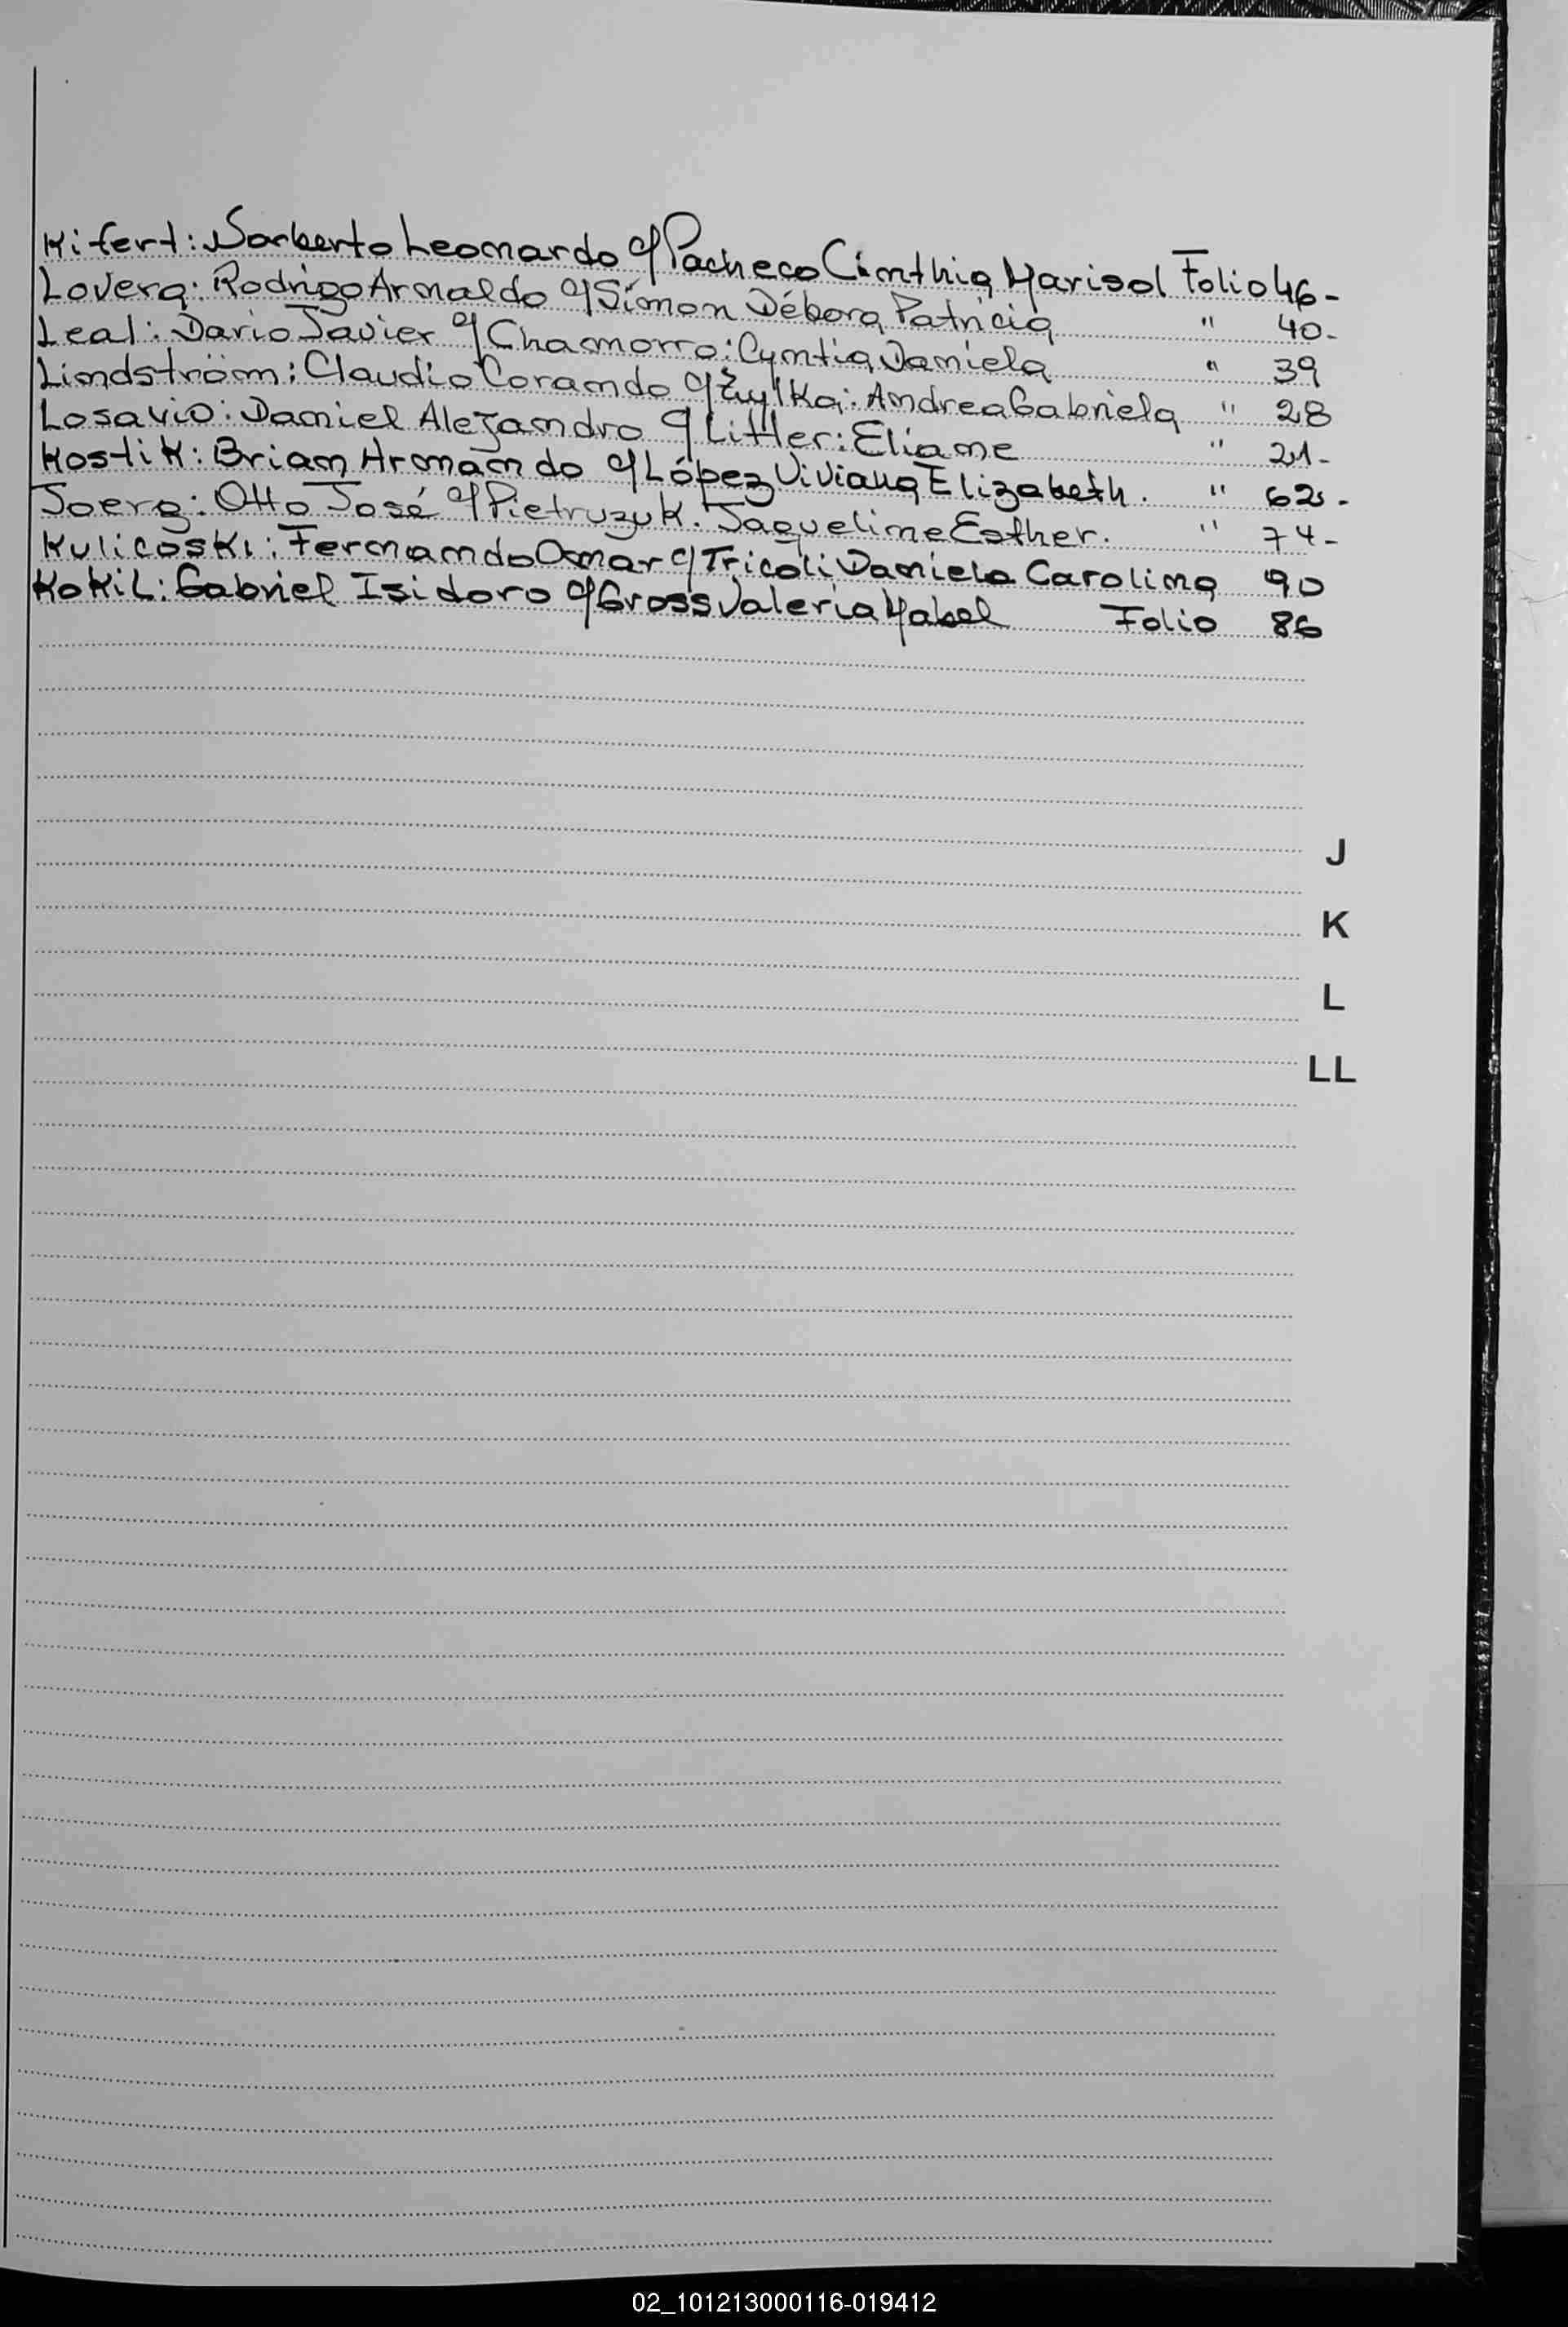 Kifert: Norberto Leonardo c/ Pacheco Cinthia Marisol Folio 46-
Lovera: Rodrigo Arnaldo c/ Simon Débora Patricia " 40-
Leal: Dario Javier c/ Chamorro: Cyntia Daniela " 39
Lindström: Claudio Corando c/ Zylka: Andrea Gabriela " 28
Losavio: Daniel Alejandro c/ Litler: Eliane " 21-
Kostik: Brian Armando c/ López Viviana Elizabeth. " 62-
Joerg: Otto José c/ Pietruzuk. Jaqueline Esther. " 74-
Kulicoski: Fernando Osmar c/ Tricoli Daniela Carolina 90
Kokil: Gabriel Isidoro c/ Gross Valeria Mabel Folio 86
J
K
L
LL
02_101213000116-019412